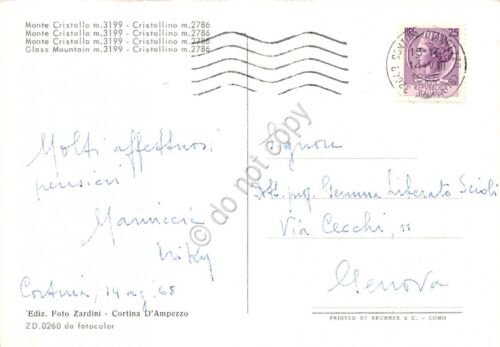 Monte Cristallo m.3199 - Cristallino m.2786
Monte Cristallo m.3199 - Cristallino m.2786
Monte Cristallo m.3199 - Cristallino m.2786
Glass Mountain m.3199 - Cristallino m.2786
25
REPUBBLICA
ITALIANA
Molti affettuosi
pensieri
Mariuccia
Cortina, 14 ag. 68
Ediz. Foto Zardini - Cortina D'Ampezzo
ZD.0260 da fotocolor
Signora
Dott. prog. Gemma Liberato Scioli
Via Cecchi, 11
Genova
PRINTED BY BRUNNER & C. - COMO
do not copy